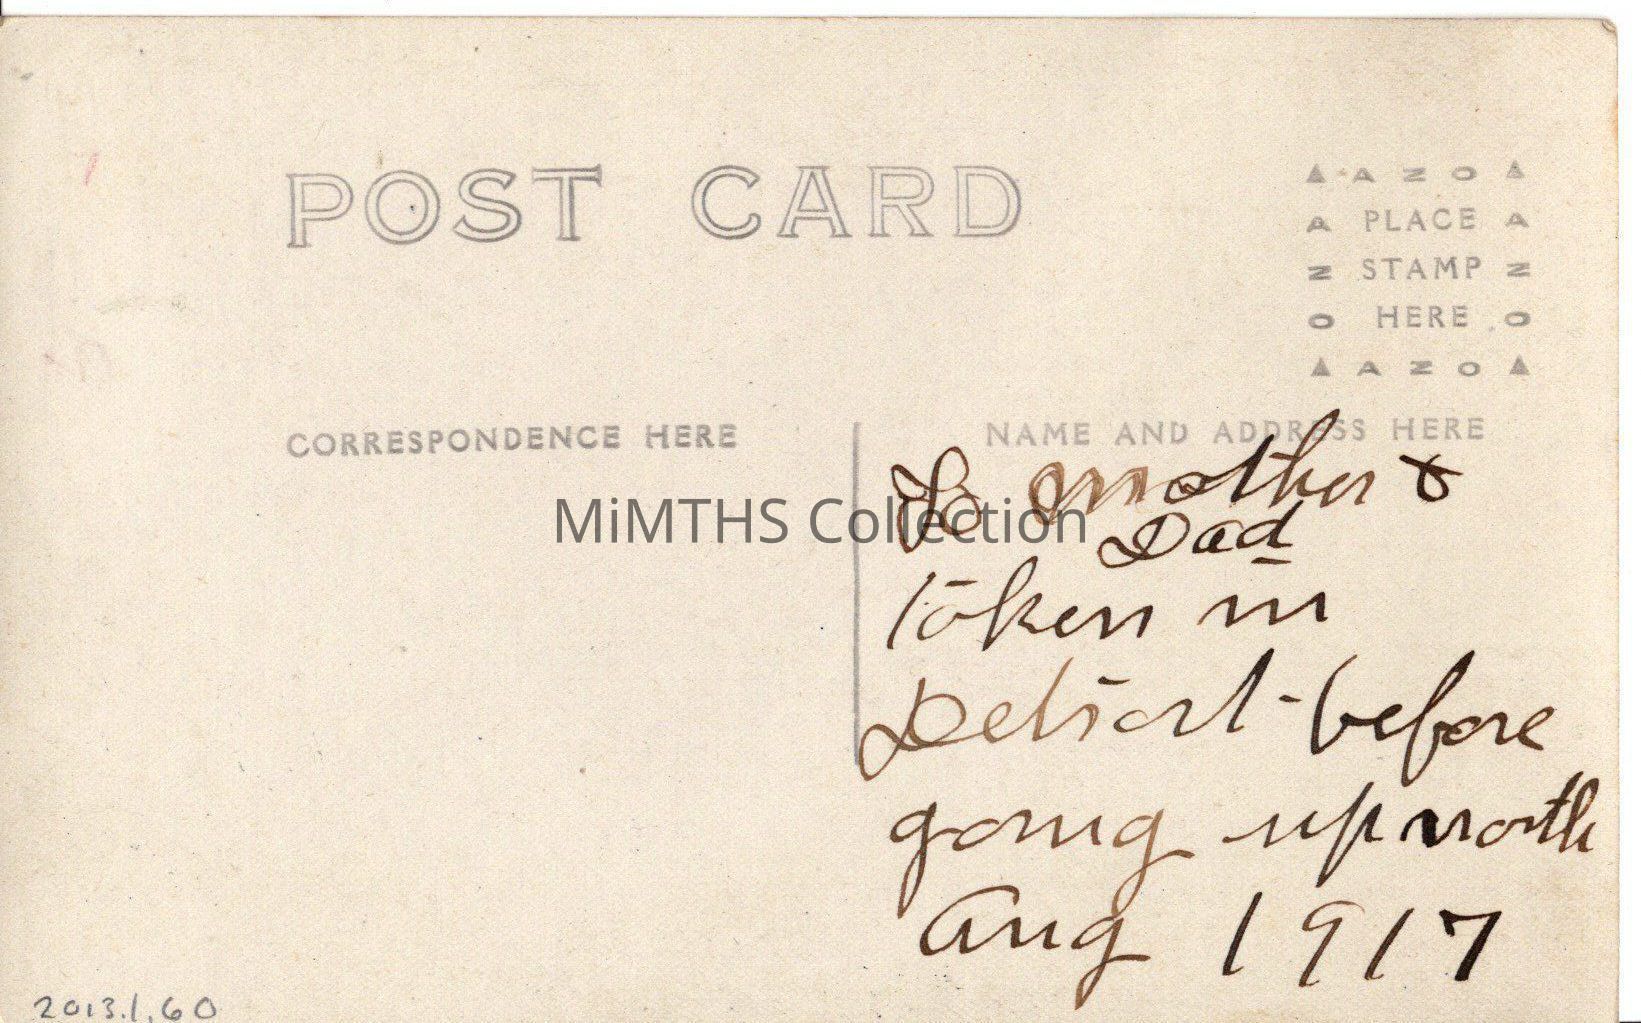 POST CARD
▲ A Z O ▲
A PLACE A
Z STAMP Z
O HERE O
▲ A Z O ▲
CORRESPONDENCE HERE
NAME AND ADDRESS HERE
To Mother &
Dad
taken in
Detroit - before
going up north
Aug 1917
MiMTHS Collection
2013.1.60